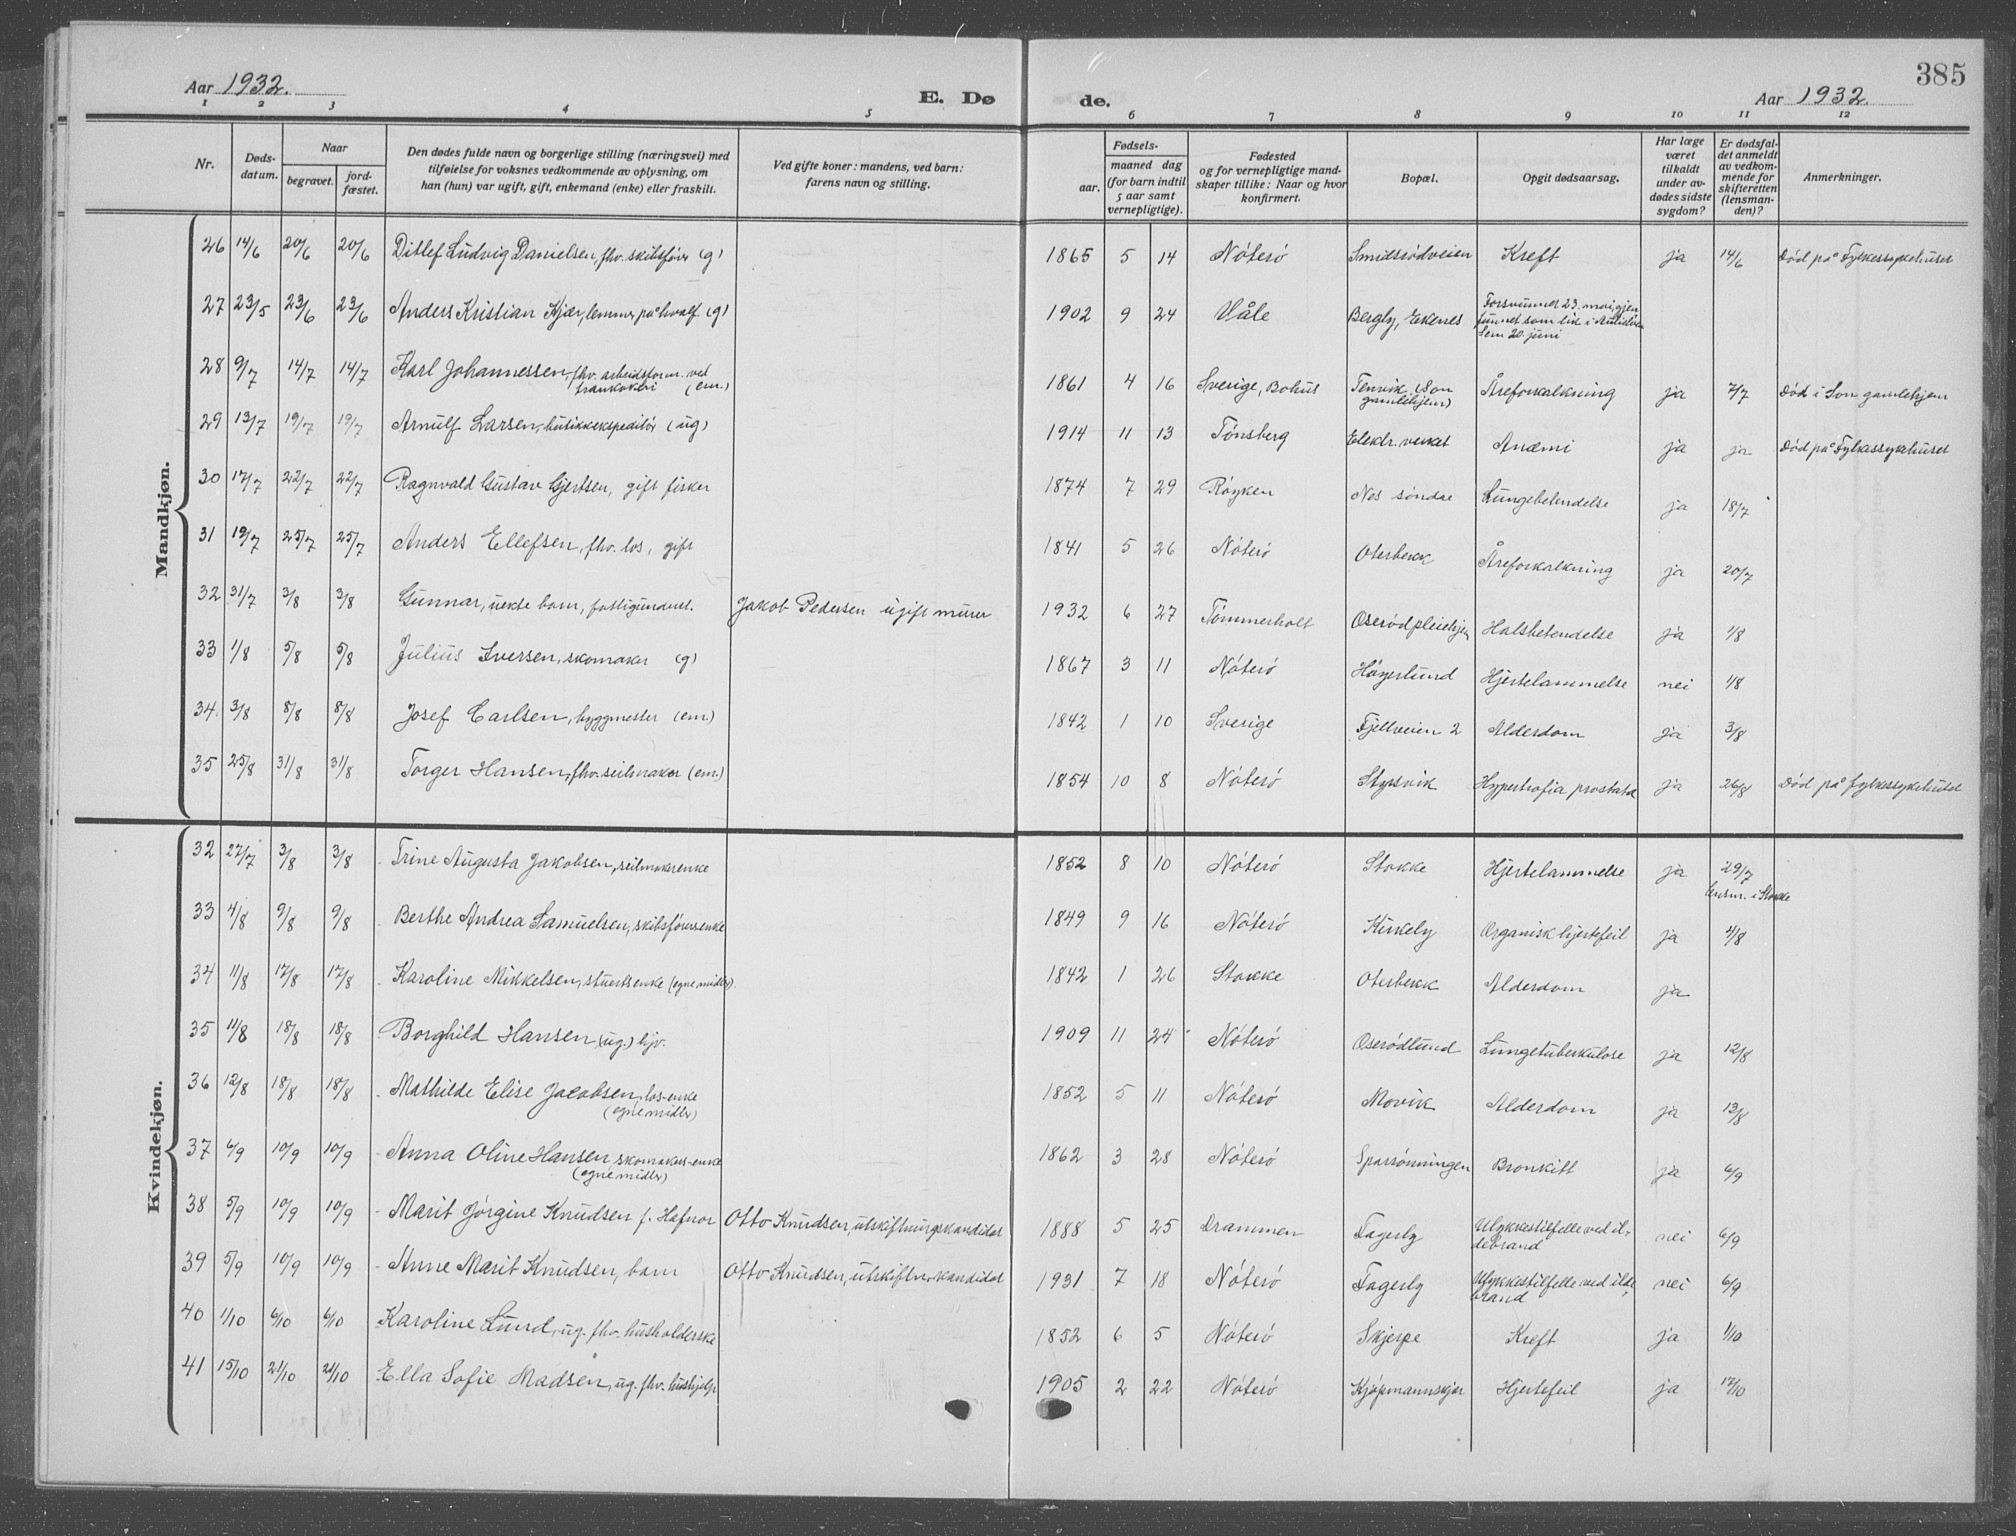 385
Aar 1932.
E. Dø
de.
Aar 1932.
1 2 3 4 5 6 7 8 9 10 11 12
Nr.
Døds-
datum.
Naar
begravet.
jord-
fæstet.
Den dødes fulde navn og borgerlige stilling (næringsvei) med
tilføielse for voksnes vedkommende av oplysning, om
han (hun) var ugift, gift, enkemand (enke) eller fraskilt.
Ved gifte koner: mandens, ved barn:
farens navn og stilling.
Fødsels-
aar.
maaned dag
(for barn indtil
5 aar samt
vernepligtige).
Fødested
og for vernepligtige mand-
skaper tillike: Naar og hvor
konfirmert.
Bopæl.
Opgit dødsaarsag.
Har læge
været
tilkaldt
under av-
dødes sidste
sygdom?
Er dødsfal-
det anmeldt
av vedkom-
mende for
skifteretten
(lensman-
den)?
Anmerkninger.
Mandkjøn.
26 14/6 20/6 20/6 Ditlef Ludvig Danielsen, fhv. skibsfører (g) 1865 5 14 Nøterø Smidsrødveien Kreft ja 14/6 Død på Fylkessykehuset
27 23/5 23/6 23/6 Anders Kristian Kjær, lemmer på hvalf. (g) 1902 9 24 Våle Bergly, Ekenes Forsvunnet 23. mai, gjen
funnet som lik i Aulielven
Sem 20. juni
28 9/7 14/7 14/7 Karl Johannessen, fhv. arbeidsform. ved
trankokeri (em.) 1861 4 16 Sverige, Bohus Tenvik, (Son
gamlehjem) Åreforkalkning ja 7/7 Død i Son gamlehjem
29 13/7 19/7 19/7 Arnulf Larsen, butikkekspeditør (ug) 1914 11 13 Tønsberg Elektr. verket Anæmi ja ja Død på Fylkessykehuset
30 17/7 22/7 22/7 Ragnvald Gustav Gjertsen, gift fisker 1874 7 29 Røyken Nes søndre Lungebetendelse ja 18/7
31 19/7 25/7 25/7 Anders Ellefsen, fhv. los, gift 1841 5 26 Nøterø Oterbekk Åreforkalkning ja 20/7
32 31/7 3/8 3/8 Gunnar, uekte barn, fattigunderst. Jakob Pedersen ugift murer 1932 6 27 Tømmerholt Oserød pleiehjem Halsbetendelse ja 1/8
33 1/8 5/8 5/8 Julius Iversen, skomaker (g) 1867 3 11 Nøterø Høyerlund Hjertelammelse nei 1/8
34 3/8 8/8 8/8 Josef Carlsen, byggmester (em.) 1842 1 10 Sverige Fjellveien 2 Alderdom ja 3/8
35 25/8 31/8 31/8 Torger Hansen, fhv. seilmaker (em.) 1854 10 8 Nøterø Stupsvik Hypertrofia prostata ja 26/8 Død på fylkessykehuset
Kvindekjøn.
32 27/7 3/8 3/8 Trine Augusta Jakobsen, seilmakerenke 1852 8 10 Nøterø Stokke Hjertelammelse ja 29/7
lensm. i Stokke
33 4/8 9/8 9/8 Berthe Andrea Samuelsen, skibsførersenke 1849 9 16 Nøterø Kirkeby Organisk hjertefeil ja 4/8
34 11/8 17/8 17/8 Karoline Mikkelsen, stuertsenke (egne midler) 1842 1 26 Stokke Oterbekk Alderdom ja
35 11/8 18/8 18/8 Borghild Hansen (ug.) hjv. 1909 11 24 Nøterø Oserødlund Lungetuberkulose ja 12/8
36 12/8 18/8 18/8 Mathilde Elise Jacobsen, los-enke
(egne midler) 1852 5 11 Nøterø Movik Alderdom ja 13/8
37 6/9 10/9 10/9 Anna Oline Hansen skomakers-enke
(egne midler) 1862 3 28 Nøterø Sparrønningen Bronkitt ja 6/9
38 5/9 10/9 10/9 Marit Jørgine Knudsen f. Hafnor Otto Knudsen, utskiftningskandidat 1888 5 25 Drammen Fagerly Ulykkestilfelle ved il-
debrand nei 6/9
39 5/9 10/9 10/9 Anne Marit Knudsen, barn Otto Knudsen, utskiftn. kandidat 1931 7 18 Nøterø Fagerly Ulykkestilfelle ved ilde
brand nei 6/9
40 1/10 6/10 6/10 Karoline Lund, ug. fhv. husholderske 1852 6 5 Nøterø Skjerpe Kreft ja 1/10
41 15/10 21/10 21/10 Ella Sofie Madsen, ug. fhv. hushjelp 1905 2 22 Nøterø Kjøpmannskjær Hjertefeil ja 17/10